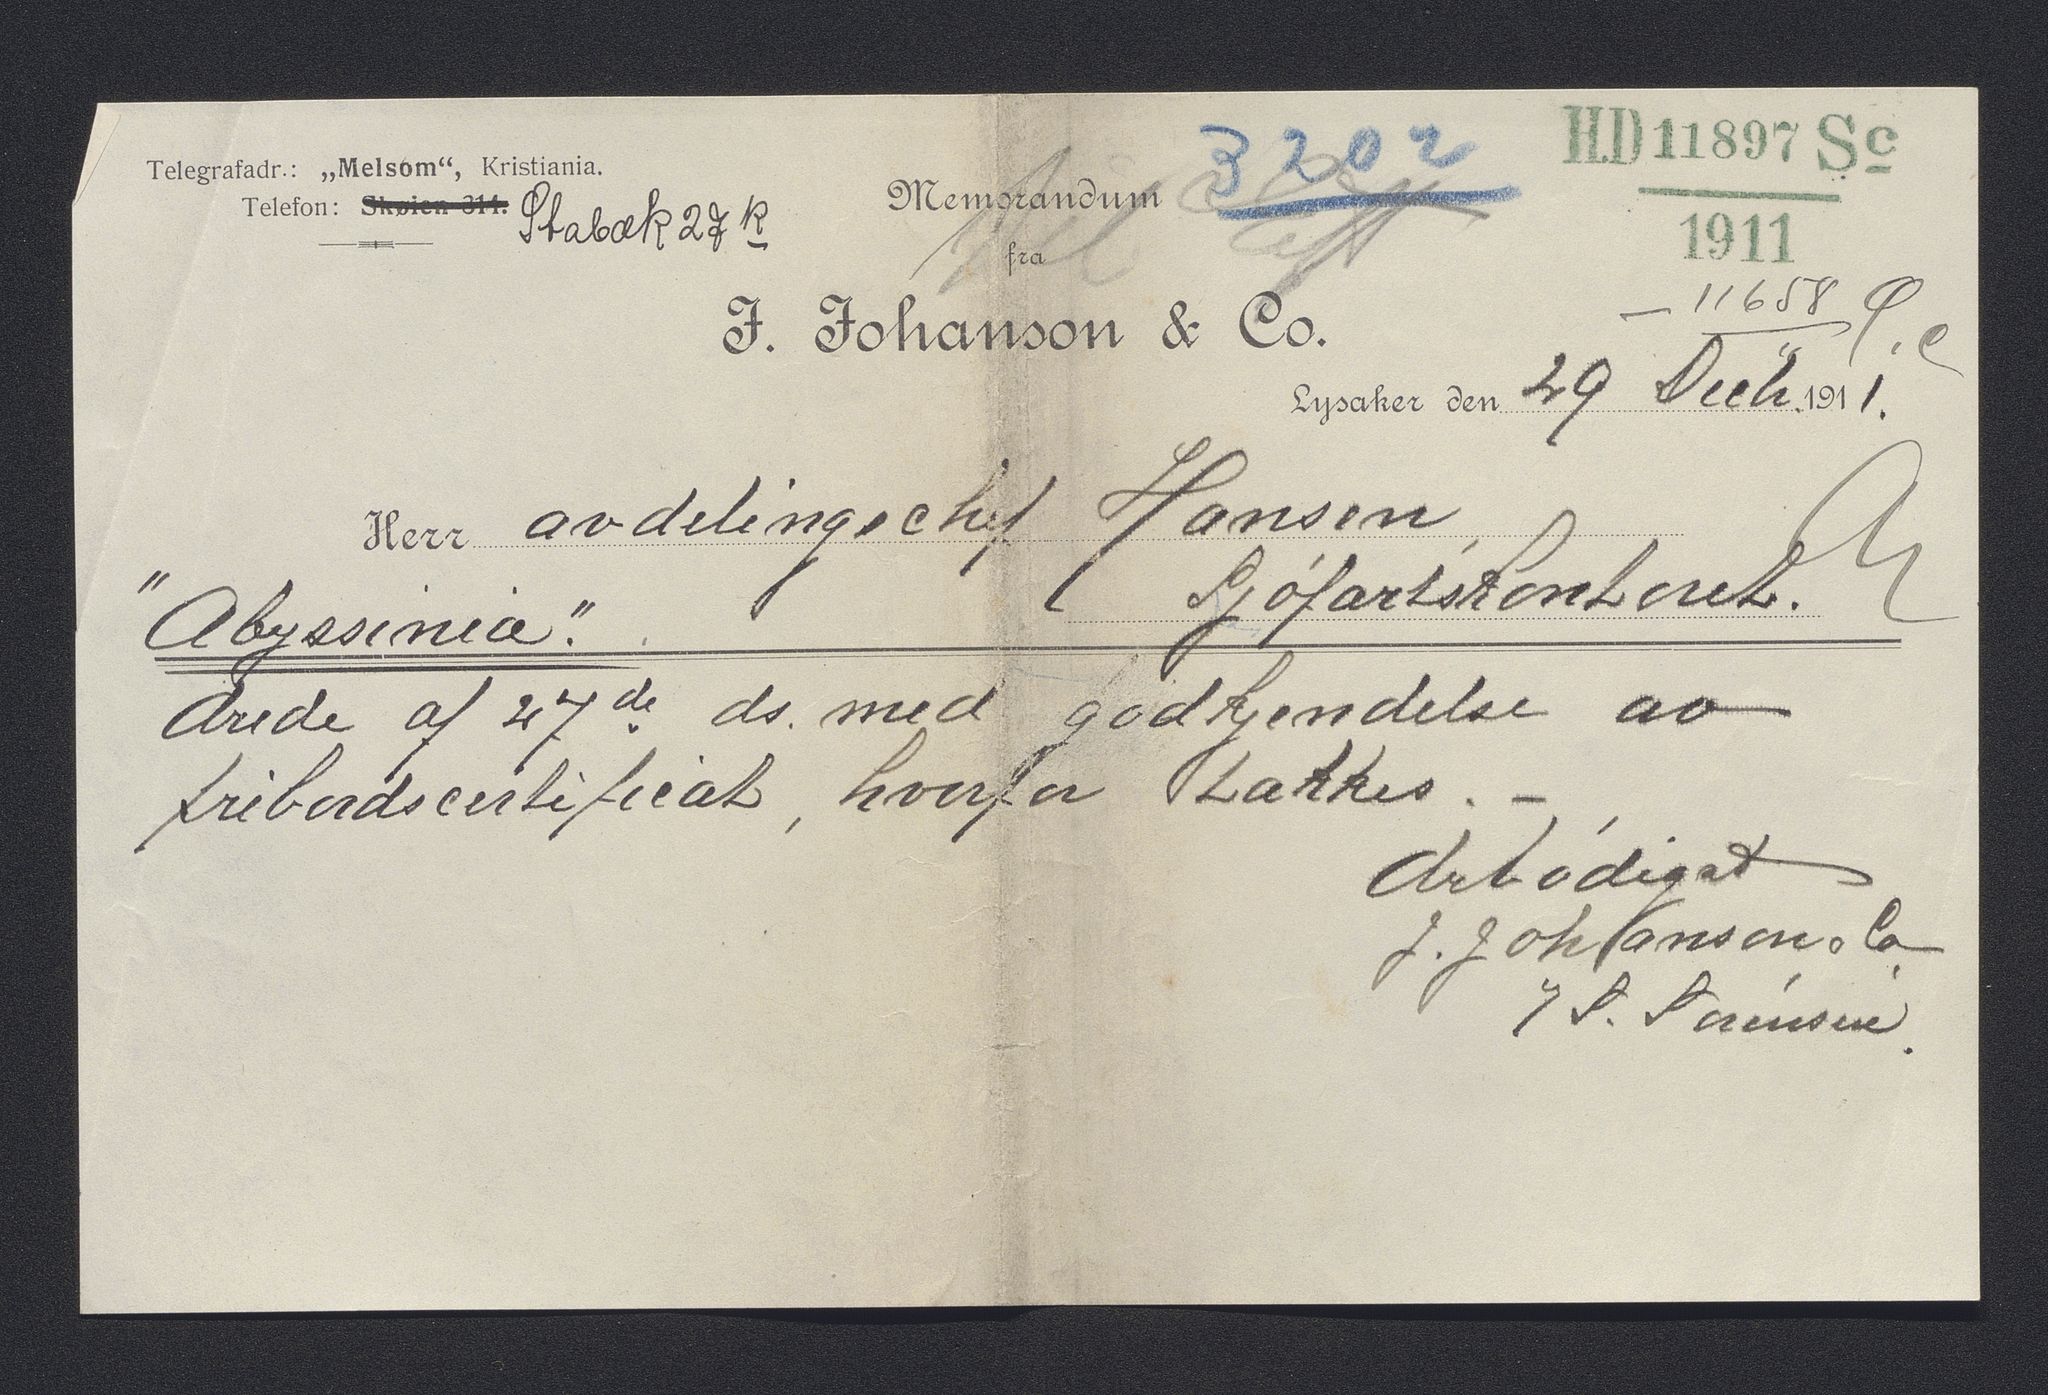 Telegrafadr.: „Melsom“, Kristiania.
Telefon: Skøien 314. Stabæk 27 k
3202
Memorandum
fra
J. Johanson & Co.
HD 11897 Sc
1911
— 11658
Lysaker den 29 Decb. 1911.
Herr avdelingschef Hansen,
Sjöfartskontoret.
"Abyssinia".
Ærede af 27de ds. med godkjendelse av
fribordscertificat, hvorfor takkes. —
Ærbödigst
J. Johanson & Co
S. Sörensen.